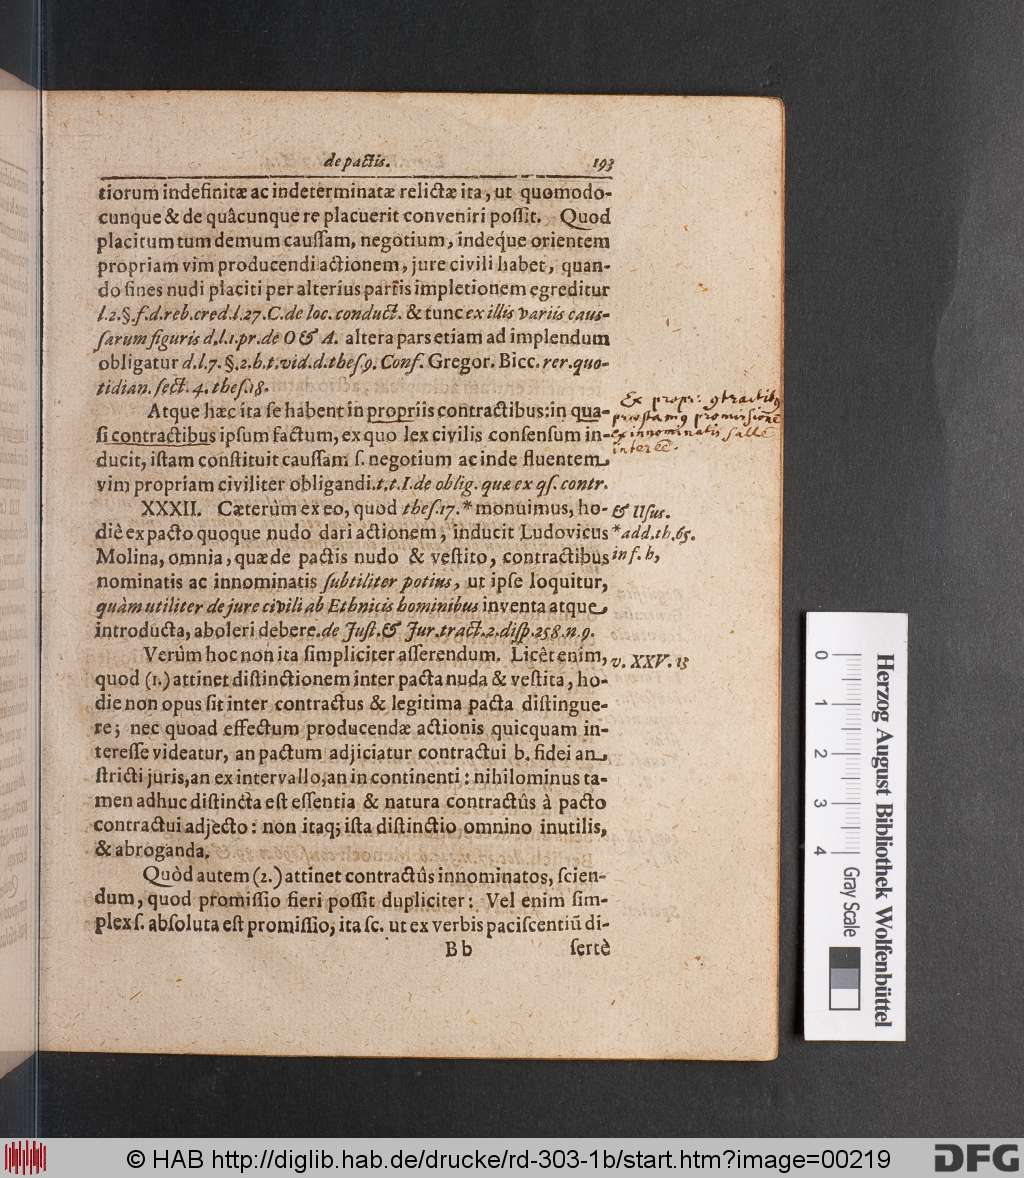 de pactis. 193
tiorum indefinitæ ac indeterminatæ relictæ ita, ut quomodo-
cunque & de quâcunque re placuerit conveniri poſſit. Quod
placitum tum demum cauſſam, negotium, indeque orientem
propriam vim producendi actionem, jure civili habet, quan-
do fines nudi placiti per alterius partis impletionem egreditur
l.2.§.f.d.reb.cred.l.27.C.de loc. conduct. & tunc ex illis variis cauſ-
ſarum figuris d.l.1.pr.de O & A. altera pars etiam ad implendum
obligatur d.l.7.§.2.h.t.vid.d.theſ.9. Conf. Gregor. Bicc. rer.quo-
tidian. ſect. 4. theſ.18.
Atque hæc ita ſe habent in propriis contractibus: in qua-
ſi contractibus ipſum factum, ex quo lex civilis conſenſum in-
ducit, iſtam conſtituit cauſſam ſ. negotium ac inde fluentem
vim propriam civiliter obligandi.t.t.I.de oblig. quæ ex qſ. contr.
Ex propr: 
ex innominatis
XXXII. Cæterùm ex eo, quod theſ.17.* monuimus, ho-
diè ex pacto quoque nudo dari actionem, inducit Ludovicus
Molina, omnia, quæ de pactis nudo & veſtito, contractibus
nominatis ac innominatis ſubtiliter potius, ut ipſe loquitur,
quàm utiliter de jure civili ab Ethnicis hominibus inventa atque
introducta, aboleri debere.de Juſt.& Jur.tract.2.diſp.258.n.9.
& Uſus.
*add.th.65.
in f. h,
Verùm hoc non ita ſimpliciter aſſerendum. Licêt enim,
v. XXV. 13
quod (1.) attinet diſtinctionem inter pacta nuda & veſtita, ho-
die non opus ſit inter contractus & legitima pacta diſtingue-
re; nec quoad effectum producendæ actionis quicquam in-
tereſſe videatur, an pactum adjiciatur contractui b. fidei an
ſtricti juris, an ex intervallo, an in continenti: nihilominus ta-
men adhuc diſtincta eſt eſſentia & natura contractûs à pacto
contractui adjecto: non itaq; iſta diſtinctio omnino inutilis,
& abroganda.
Quòd autem (2.) attinet contractûs innominatos, ſcien-
dum, quod promiſſio fieri poſſit dupliciter: Vel enim ſim-
plex ſ. abſoluta eſt promiſſio, ita ſc. ut ex verbis paciſcentiũ di-
B b ſertè
0 1 2 3 4
Gray Scale
Herzog August Bibliothek Wolfenbüttel
© HAB http://diglib.hab.de/drucke/rd-303-1b/start.htm?image=00219
DFG